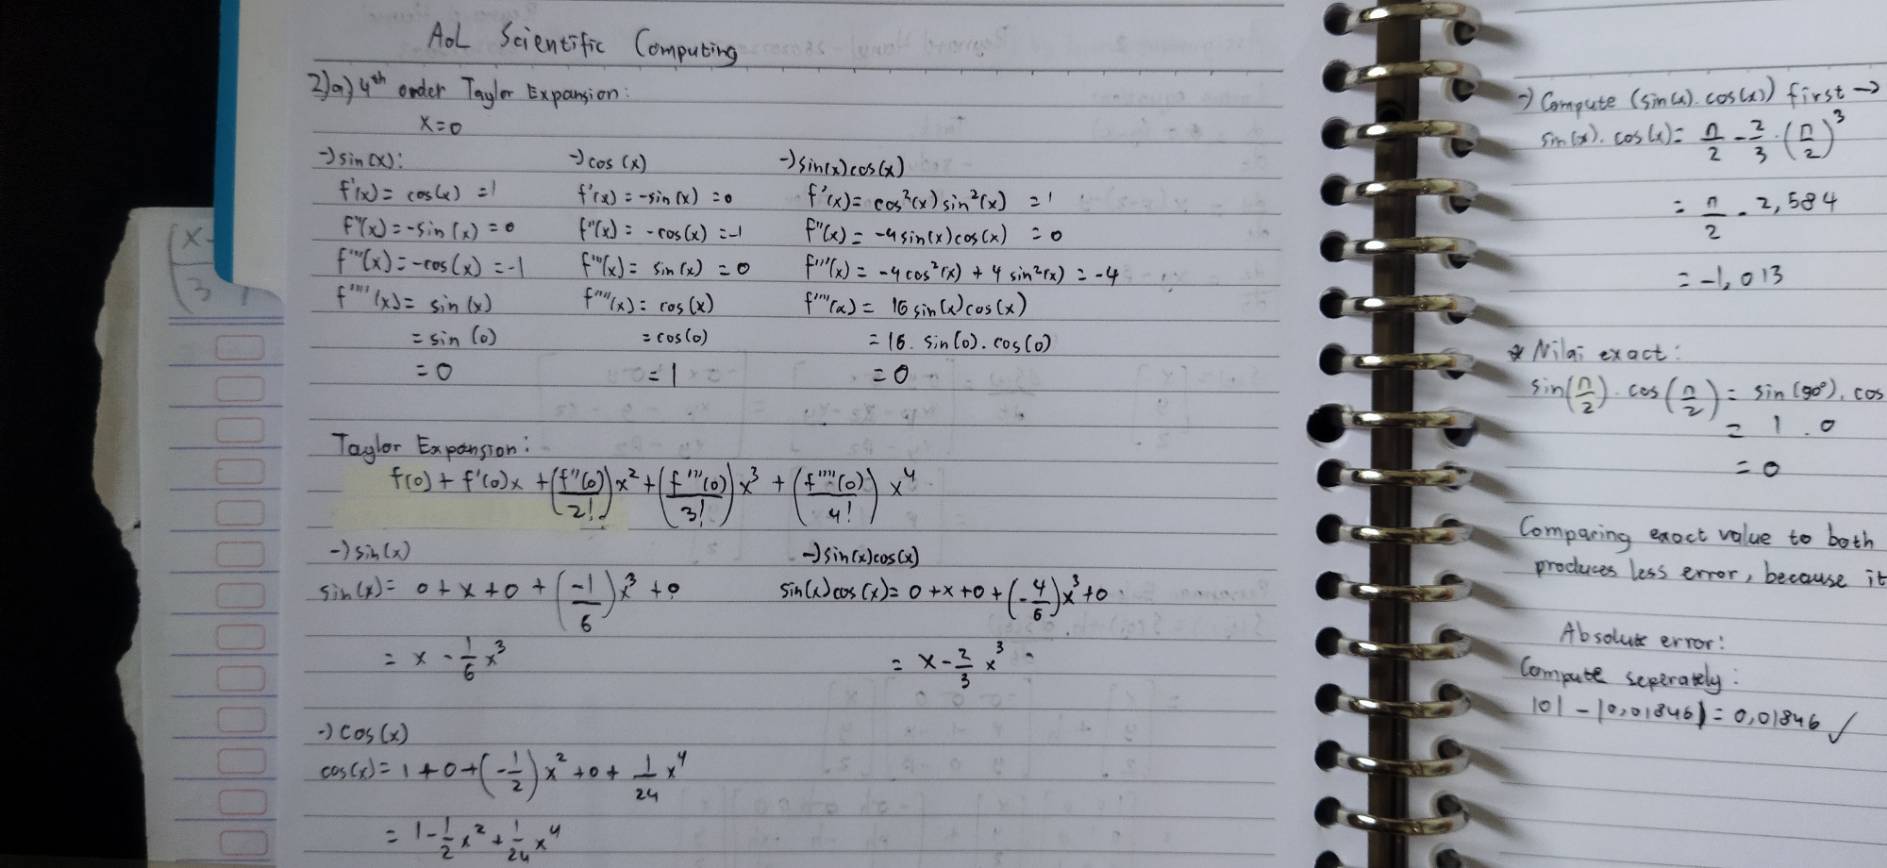 AoL Scientific Computing
2)a) 4th order Taylor Expansion:
x=0
→sin(x): →cos(x) →sin(x)cos(x)
f'(x) = cos(x) = 1 f'(x) = -sin(x) = 0 f'(x) = cos²(x) sin²(x) = 1
f''(x) = -sin(x) = 0 f''(x) = -cos(x) = -1 f''(x) = -4sin(x)cos(x) = 0
f'''(x) = -cos(x) = -1 f'''(x) = sin(x) = 0 f'''(x) = -4cos²(x) + 4 sin²(x) = -4
f''''(x) = sin(x) f''''(x) = cos(x) f''''(x) = 16 sin(x) cos(x)
= sin(0) = cos(0) = 16. sin(0). cos(0)
= 0 = 1 = 0
Taylor Expansion:
f(0) + f'(0)x + (f''(0)/2!) x² + (f'''(0)/3!) x³ + (f''''(0)/4!) x⁴
→sin(x) →sin(x)cos(x)
sin(x) = 0 + x + 0 + (-1/6) x³ + 0 sin(x)cos(x) = 0 + x + 0 + (-4/6) x³ + 0
= x - 1/6 x³ = x - 2/3 x³
→cos(x)
cos(x) = 1 + 0 + (-1/2) x² + 0 + 1/24 x⁴
= 1 - 1/2 x² + 1/24 x⁴
→ Compute (sin(x). cos(x)) first →
sin(x). cos(x) = π/2 - 2/3 . (π/2)³
= π/2 - 2,584
= -1,013
* Nilai exact:
sin(π/2). cos(π/2) = sin(90°). cos
= 1 . 0
= 0
Comparing exact value to both
produces less error, because it
Absolute error:
Compute seperately:
|0| - |0,01846| = 0,01846 ✓
x-
3